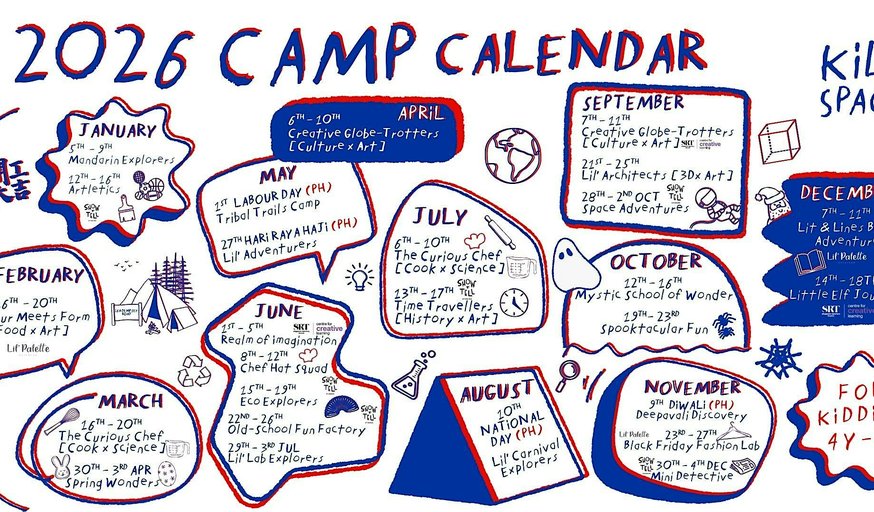 2026 CAMP CALENDAR
KiD
SPAC
JANUARY
5TH - 9TH
Mandarin Explorers
12TH - 16TH
Artletics
SHOW
TELL
APRiL
6TH - 10TH
Creative Globe-Trotters
[Culture x Art]
MAY
1ST LABOUR DAY (PH)
Tribal Trails Camp
27TH HARi RAYA HAJi (PH)
Lil' Adventurers
SEPTEMBER
7TH - 11TH
Creative Globe-Trotters
[Culture x Art] SRT centre for creative learning
21ST - 25TH
Lil' Architects [3Dx Art]
28TH - 2ND OCT SHOW TELL
Space Adventures
JULY
6TH - 10TH
The Curious Chef
[Cook x Science]
13TH - 17TH SHOW TELL
Time Travellers
[History x Art]
DECEMB
7TH - 11TH
Lit & Lines B
Adventur
Lil' Palette
14TH - 18T
Little Elf Jou
SRT creative learning
FEBRUARY
6TH - 20TH
ur Meets Form
ood x Art]
Lil' Palette
OCTOBER
12TH - 16TH
Mystic School of Wonder
19TH - 23RD
Spooktacular Fun
JUNE
1ST - 5TH SRT centre for creative learning
Realm of imagination
8TH - 12TH
Chef Hat Squad
15TH - 19TH SHOW TELL
Eco Explorers
22ND - 26TH SHOW TELL
Old-School Fun Factory
29TH - 3RD JUL
Lil' Lab Explorers
MARCH
16TH - 20TH
The Curious Chef
[Cook x Science]
30TH - 3RD APR
Spring Wonders
AUGUST
10TH
NATiONAL
DAY (PH)
Lil' Carnival
Explorers
NOVEMBER
9TH DiWALi (PH)
Deepavali Discovery
Lil' Palette 23RD - 27TH
Black Friday Fashion Lab
SHOW TELL 30TH - 4TH DEC
Mini Detective
FO
KiDDi
4Y -